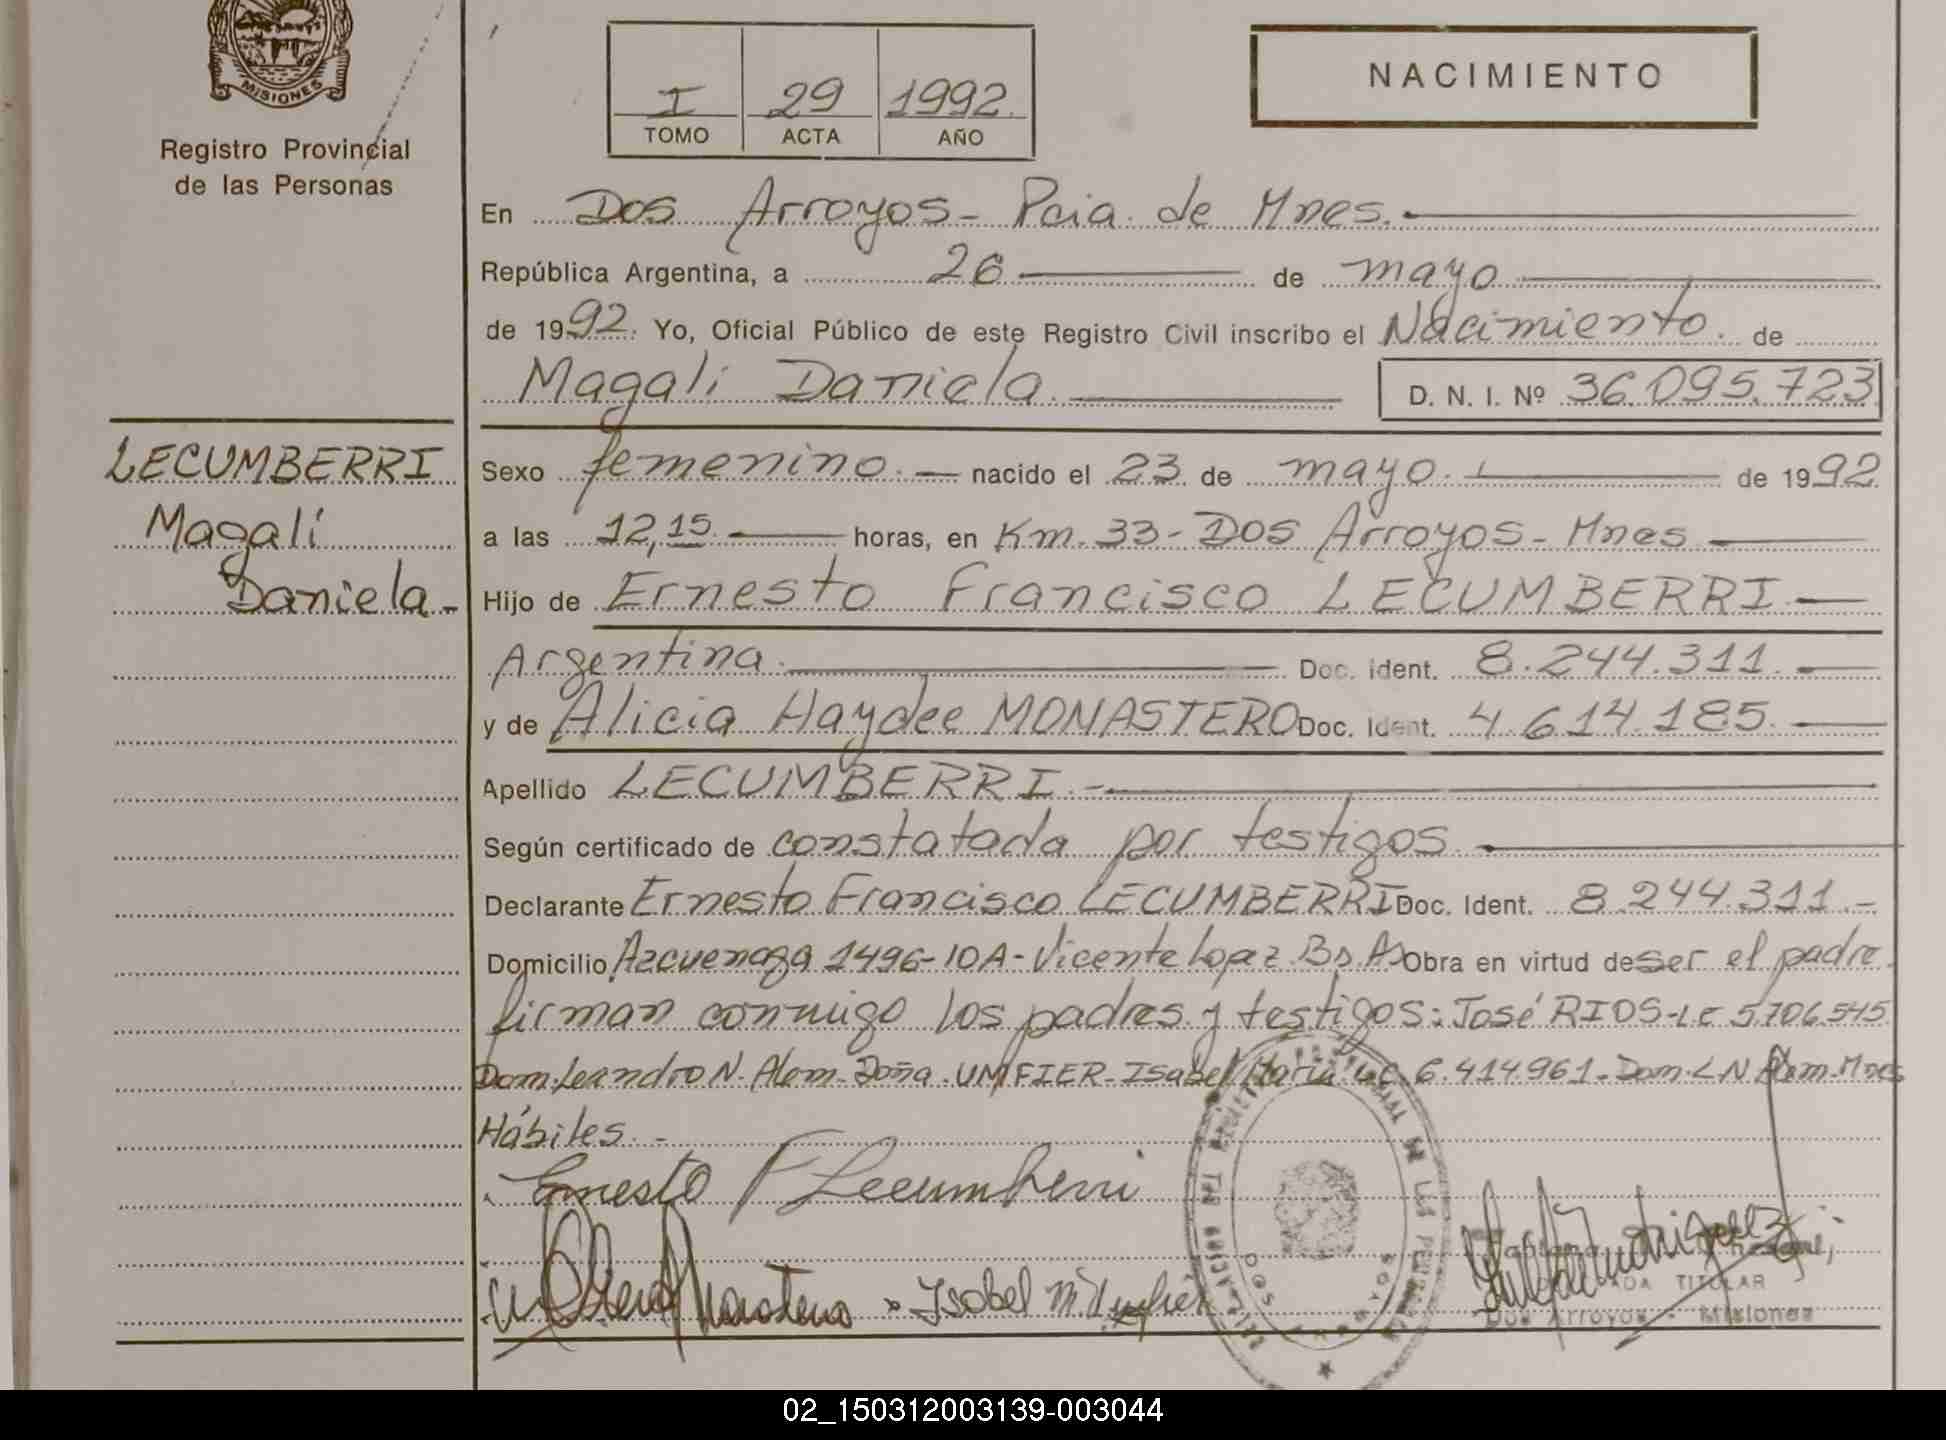 MISIONES
Registro Provincial
de las Personas
I 29 1992.
TOMO ACTA AÑO
NACIMIENTO
En Dos Arroyos - Pcia. de Mnes.
República Argentina, a 26 de mayo
de 1992. Yo, Oficial Público de este Registro Civil inscribo el Nacimiento. de
Magali Daniela. D. N. I. Nº 36.095.723
LECUMBERRI
Magalí
Daniela.-
Sexo femenino.- nacido el 23 de mayo. de 1992
a las 12,15. horas, en Km. 33 - Dos Arroyos - Mnes
Hijo de Ernesto Francisco LECUMBERRI
Argentina. Doc. Ident. 8.244.311.-
y de Alicia Haydee MONASTERO Doc. Ident. 4.614.185.
Apellido LECUMBERRI.-
Según certificado de constatada por testigos.
Declarante Ernesto Francisco LECUMBERRI Doc. Ident. 8.244.311.-
Domicilio Azcuenaga 1496-10A-Vicente Lopez Bs. As Obra en virtud de ser el padre.
firman conmigo los padres y testigos: José RIOS-L.E 5.706.545
Dom. Leandro N. Alem. Doña. UMFIER-Isabel Maria L.C. 6.414.961-Dom. L N Alem. Mnes
Hábiles.-
Ernesto F Lecumberri
Isabel M.
TITULAR
Dos Arroyos - Misiones
02_150312003139-003044